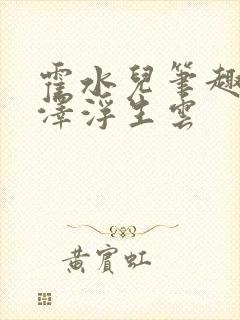 水兒筆趣
澤浮生雲
黃賓虹